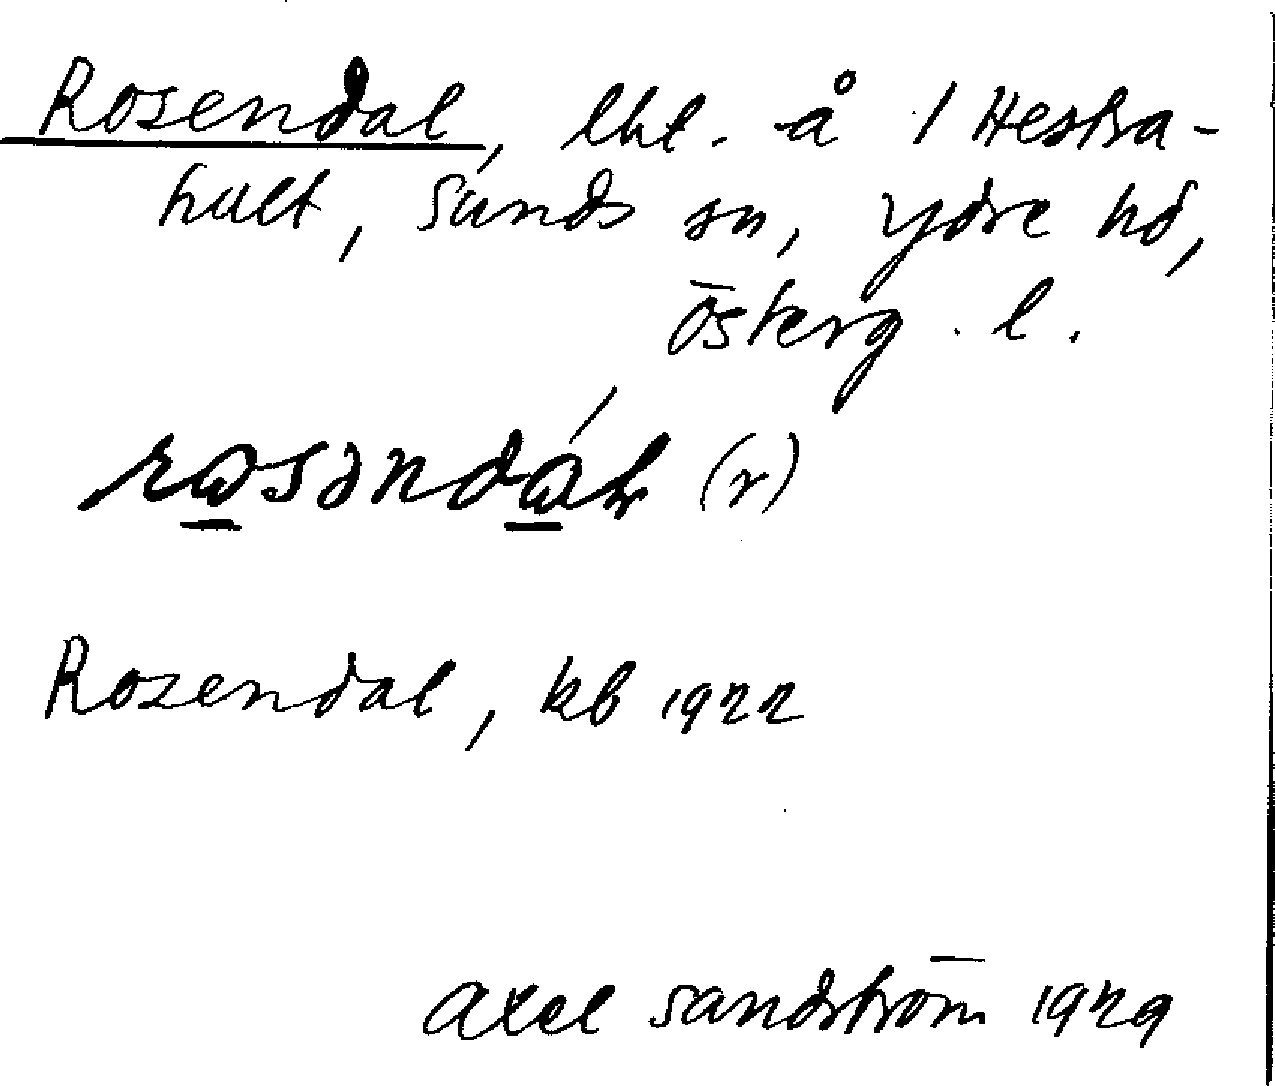 Rosendal, lht. å 1 Hestra-
hult, Sunds sn, Ydre hd,
Österg. l.
(r)
Rosendal, kb 1922
Axel Sandström 1929